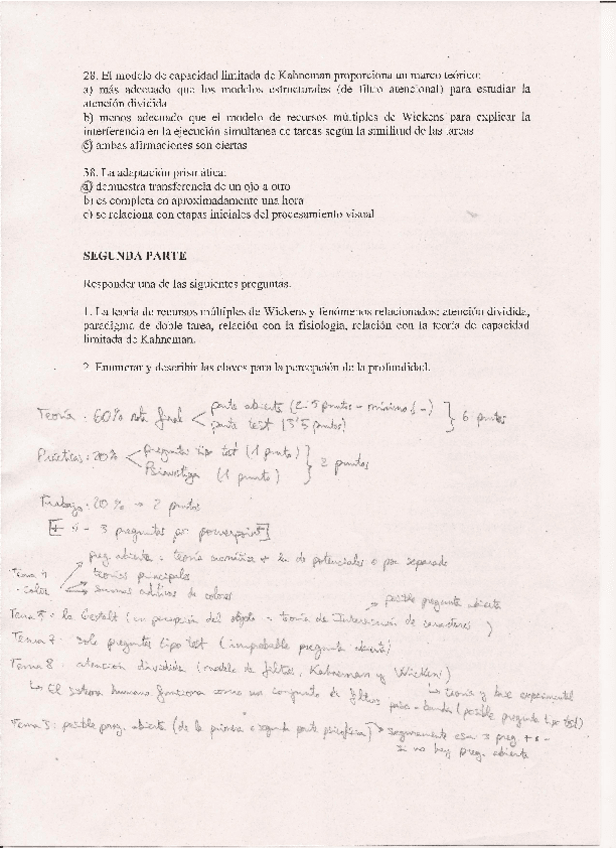 28. El modelo de capacidad limitada de Kahneman proporciona un marco teórico:
a) más adecuado que los modelos estructurales (de filtro atencional) para estudiar la
atención dividida
b) menos adecuado que el modelo de recursos múltiples de Wickens para explicar la
interferencia en la ejecución simultanea de tareas según la similitud de las tareas
c) ambas afirmaciones son ciertas
38. La adaptación prismática:
a) demuestra transferencia de un ojo a otro
b) es completa en aproximadamente una hora
c) se relaciona con etapas iniciales del procesamiento visual
SEGUNDA PARTE
Responder una de las siguientes preguntas.
1. La teoría de recursos múltiples de Wickens y fenómenos relacionados: atención dividida,
paradigma de doble tarea, relación con la fisiología, relación con la teoría de capacidad
limitada de Kahneman.
2. Enumerar y describir las claves para la percepción de la profundidad.
Teoría: 60% nota final
parte abierta (2'5 puntos - mínimo
parte test (3'5 puntos)
6 puntos
Prácticas: 20%
preguntas tipo test (1 punto)
(1 punto)
2 puntos
Trabajo: 20% → 2 puntos
[+ ó - 3 preguntas por powerpoint]
preg. abierta = teoría + de potenciales o por separado
Tema 4
color
teorías principales
aditivas de colores
posible pregunta abierta
Tema 5: la Gestalt (en percepción del objeto = teoría de Integración de caracteres)
Tema 7: solo preguntas tipo test (improbable pregunta abierta)
Tema 8: atención dividida (modelo de filtros, Kahneman y Wickens)
teoría y base experimental
El sistema humano funciona como un conjunto de filtros pasa-banda (posible pregunta tipo test)
Tema 3: posible preg. abierta (de la primera o segunda parte psicofísica) seguramente 3 preg. + o -
si no hay preg. abierta